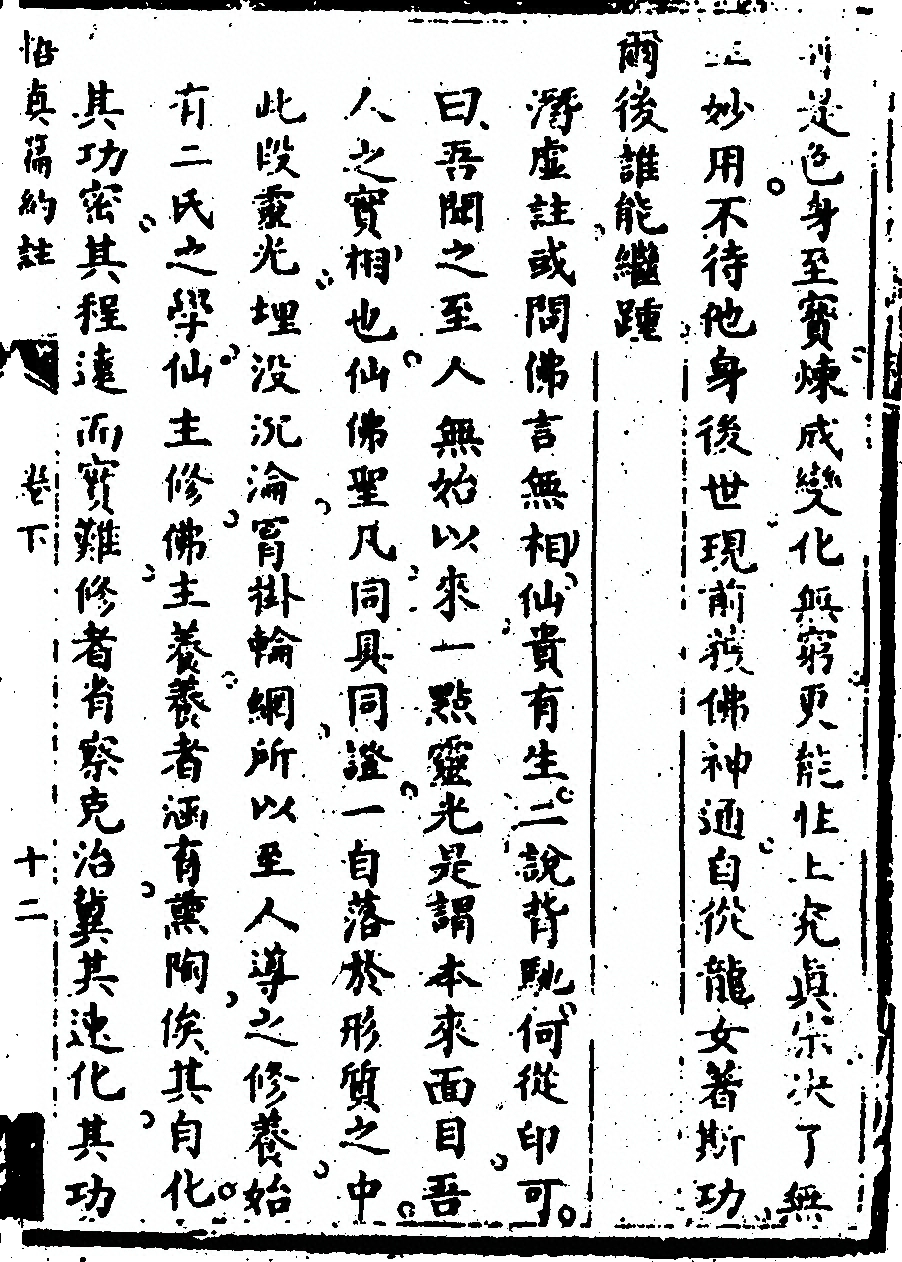 是色身至寶煉成變化無窮更能性上究眞宗决了無
生妙用不待他身後世現前獲佛神通自從龍女著斯功
爾後誰能繼踵
潛虛註或問佛言無相仙貴有生二說背馳何從印可
曰吾聞之至人無始以來一點靈光是謂本來面目吾
人之實相也仙佛聖凡同具同證一自落於形質之中
此段靈光埋没沉淪罥掛輪網所以至人導之修養始
有二氏之學仙主修佛主養養者涵育薰陶俟其自化
其功密其程遠而實難修者省察克治冀其速化其功
悟真篇約註 卷下 十二